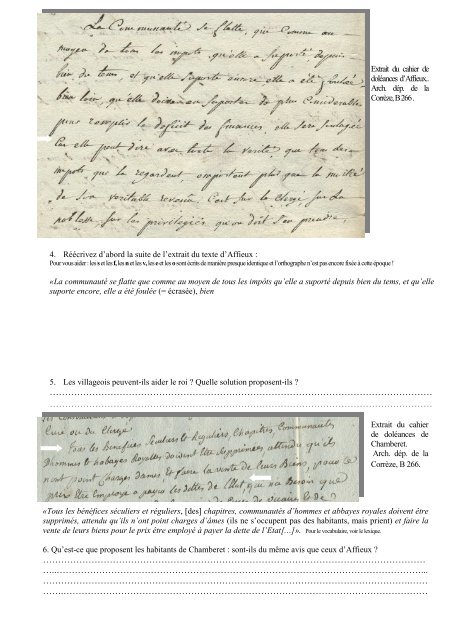 La Communauté se flatte, que comme au
moyen de tous les impots qu'elle a suporté depuis
bien du tems, et qu'elle suporte encore elle a été foulée
bien loin, qu'elle doive en suporter de plus considerables
pour remplir le deficit des finances, elle sera soulagée
Car elle peut dire avec toute la verité, que tous les
impots, que la regardent emportent plus que la moitié
de son veritable revenu, C'est sur le Clergé, sur La
noblesse, sur les privilegiés qu'on doit s'en prendre,
Extrait du cahier de
doléances d'Affieux.
Arch. dép. de la
Corrèze, B 266 .
4. Réécrivez d'abord la suite de l'extrait du texte d'Affieux :
Pour vous aider : les s et les f, les n et les v, les e et les o sont écrits de manière presque identique et l'orthographe n'est pas encore fixée à cette époque !
«La communauté se flatte que comme au moyen de tous les impôts qu'elle a suporté depuis bien du tems, et qu'elle
suporte encore, elle a été foulée (= écrasée), bien
5. Les villageois peuvent-ils aider le roi ? Quelle solution proposent-ils ?
Curé ou du Clergé
Tous les Benefices Seculiers & Reguliers, Chapitres, Communautés
D'hommes & abbayes Royalles, doivent être supprimées, attendu qu'ils
n'ont point Charges d'ames, et faire la vente de leurs Biens, pour le
prix être Employé a payer les dettes de l'Etat
Extrait du cahier
de doléances de
Chamberet.
Arch. dép. de la
Corrèze, B 266.
«Tous les bénéfices séculiers et réguliers, [des] chapitres, communautés d'hommes et abbayes royales doivent être
supprimés, attendu qu'ils n'ont point charges d'âmes (ils ne s'occupent pas des habitants, mais prient) et faire la
vente de leurs biens pour le prix être employé à payer la dette de l'Etat[…]». Pour le vocabulaire, voir le lexique.
6. Qu'est-ce que proposent les habitants de Chamberet : sont-ils du même avis que ceux d'Affieux ?